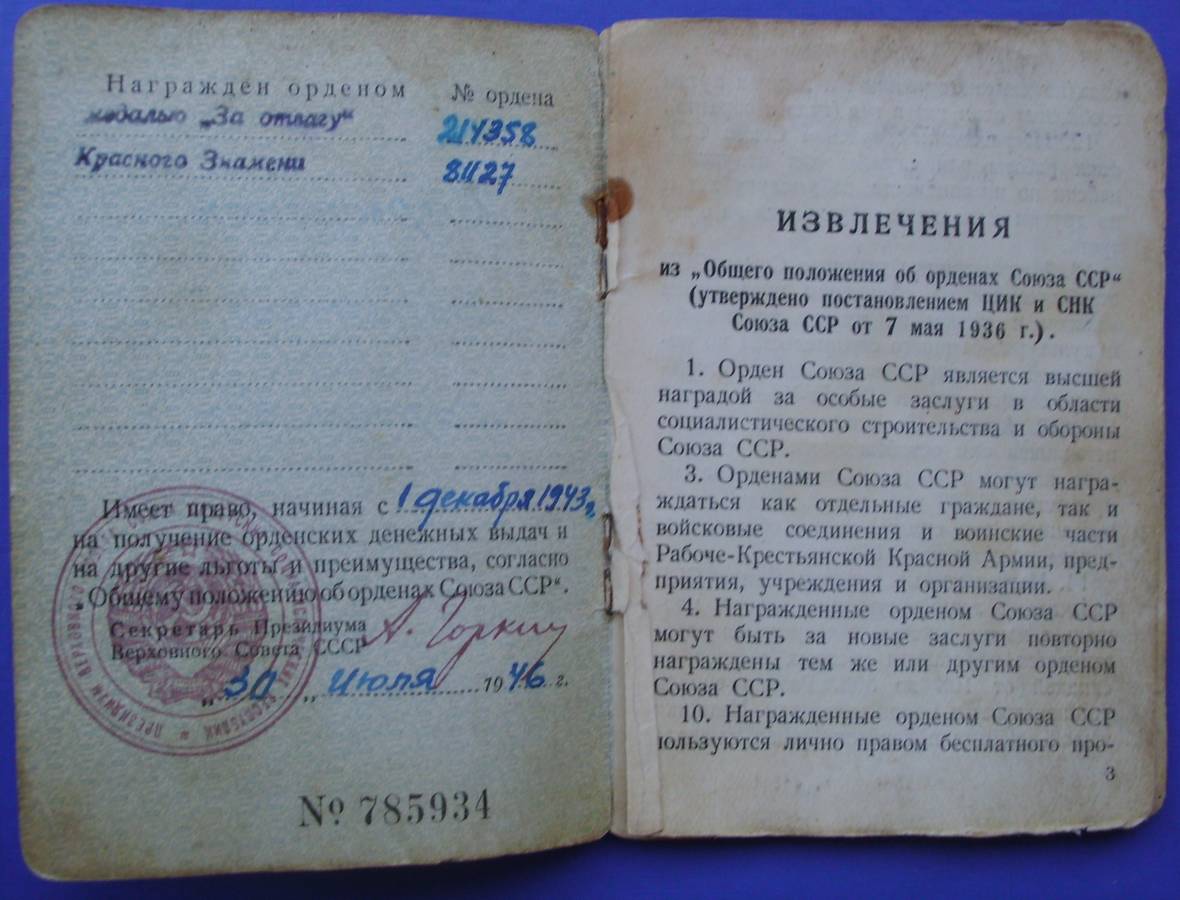 Награжден орденом № ордена
медалью „За отвагу" 214358
Красного Знамени 81127
Имеет право, начиная с 1 декабря 1943 г.
на получение орденских денежных выдач и
на другие льготы и преимущества, согласно
„Общему положению об орденах Союза ССР".
Секретарь Президиума
Верховного Совета СССР А. Горкин
„30„ Июля 1946 г.
№ 785934
ИЗВЛЕЧЕНИЯ
из „Общего положения об орденах Союза ССР"
(утверждено постановлением ЦИК и СНК
Союза ССР от 7 мая 1936 г.).
1. Орден Союза ССР является высшей
наградой за особые заслуги в области
социалистического строительства и обороны
Союза ССР.
3. Орденами Союза ССР могут награ-
ждаться как отдельные граждане, так и
войсковые соединения и воинские части
Рабоче-Крестьянской Красной Армии, пред-
приятия, учреждения и организации.
4. Награжденные орденом Союза ССР
могут быть за новые заслуги повторно
награждены тем же или другим орденом
Союза ССР.
10. Награжденные орденом Союза ССР
пользуются лично правом бесплатного про-
3